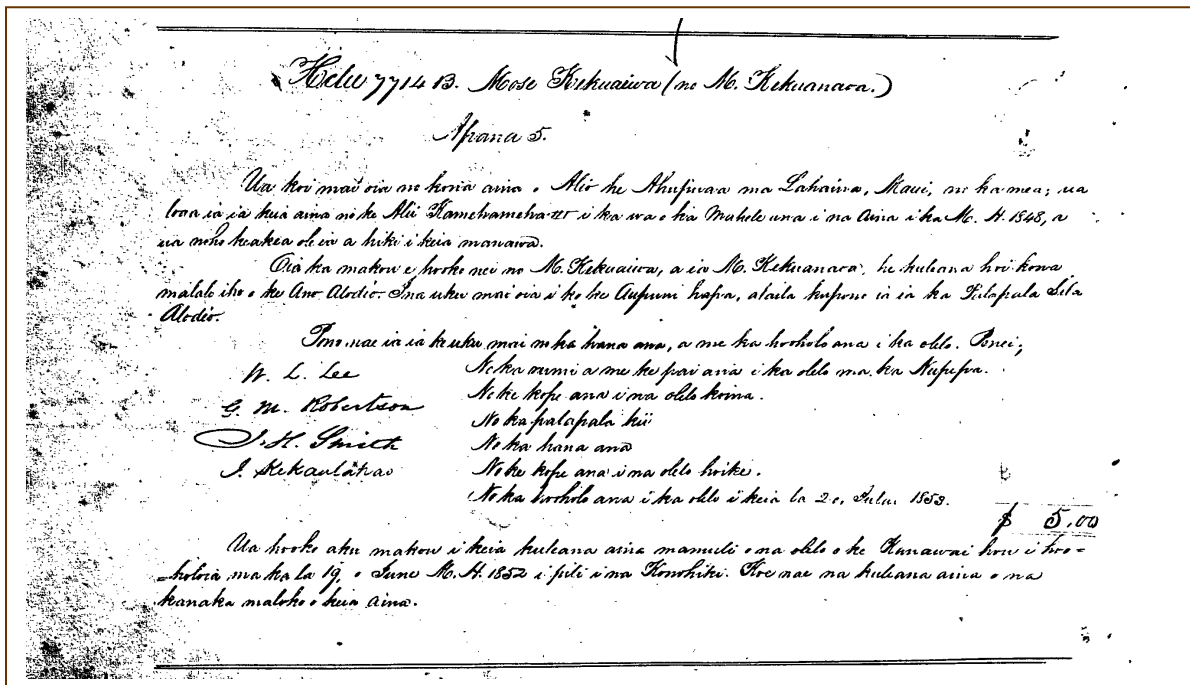 Helu 7714 B. Mose Kekuaiwa (no M. Kekuanaoa.)
Apana 5.
Ua koi mai oia no kona aina o Alio he Ahupuaa ma Lahaina, Maui, no ka mea; ua
loaa ia ia keia aina no ke Alii Kamehameha III i ka wa o ka Mahele ana i na Aina i ka M. H. 1848, a
ua noho keakea ole ia a hiki i keia manawa.
Oia ka makou e hooko nei no M. Kekuaiwa, a ia M. Kekuanaoa, he kuleana hoi kona
malalo iho o ke Ano Alodio. Ina uku mai oia i ko ke Aupuni hapa, alaila kupono ia ia ka Palapala Sila
Alodio.
Pono nae ia ia ke uku mai no ka hana ana, a me ka hooholo ana i ka olelo. Penei;
W. L. Lee
G. M. Robertson
J. H. Smith
J. Kekaulahao
No ka nimi a me ke pai ana i ka olelo ma ka Nupepa.
No ke kope ana i na olelo koina.
No ka palapala kii
No ka hana ana
No ke kope ana i na olelo hoike.
No ka hooholo ana i ka olelo i keia la 2 o, Iulai 1853.
$ 5.00
Ua hooko aku makou i keia kuleana aina mamuli o na olelo o ke Kanawai hou i hoo=
=holoia ma ka la 19, o June M. H. 1852 i pili i na Konohiki. Koe nae na kuleana aina o na
kanaka maloko o keia aina.